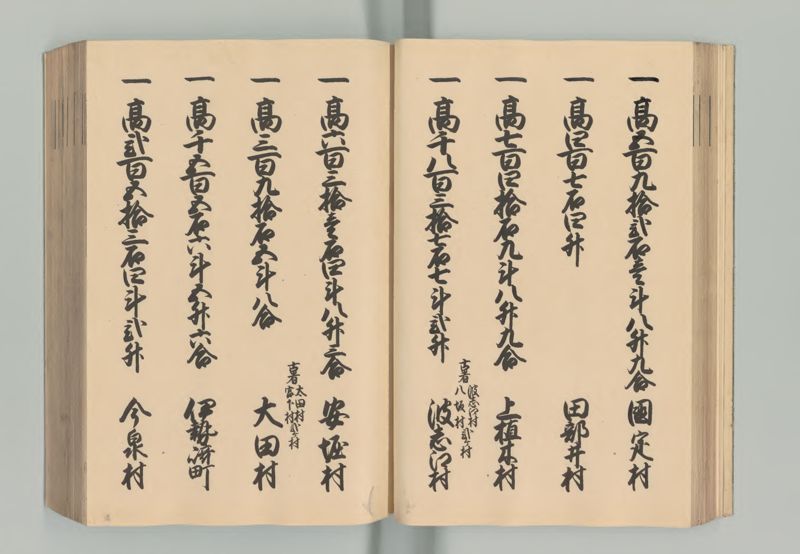 一 高五百九拾弐石壱斗八升九合 國定村
一 高四百七石四升 田部井村
一 高七百四拾石九斗八升九合 上植木村
一 高千八百三拾七石七斗弐升 古者 波志江村 八坂村 弐ヶ村 波志江村
一 高六百三拾壱石四斗八升三合 安堀村
一 高三百九拾石五斗八合 古者 太田村 宮下村 弐ヶ村 大田村
一 高千五百五石六斗五升六合 伊勢崎町
一 高弐百五拾三石四斗弐升 今泉村